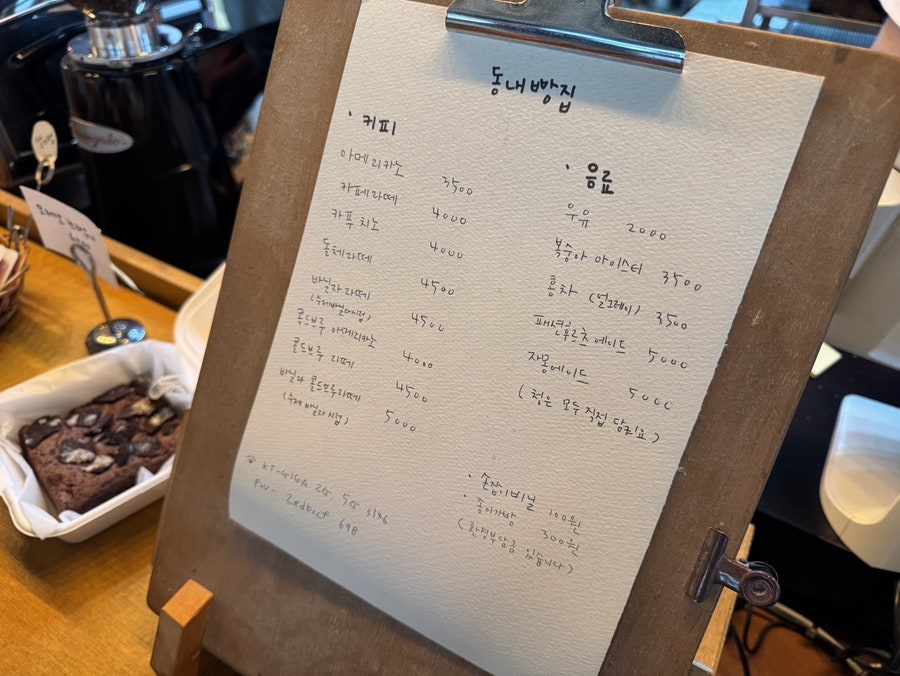 동내빵집
· 커피
아메리카노 3500
카페라떼 4000
카푸치노 4000
돌체라떼 4500
바닐라라떼 4500
(수제바닐라시럽)
콜드브루 아메리카노 4000
콜드브루 라떼 4500
바닐라 콜드브루라떼 5000
(수제 바닐라 시럽)
· 음료
우유 2000
복숭아 아이스티 3500
홍차 (얼그레이) 3500
패션후르츠 에이드 5000
자몽에이드 5000
(청은 모두 직접 담궈요)
· 손잡이비닐 100원
· 종이가방 300원
(환경부담금 있습니다)
@ KT-GIGA 2G, 5G 3346
PW- 698